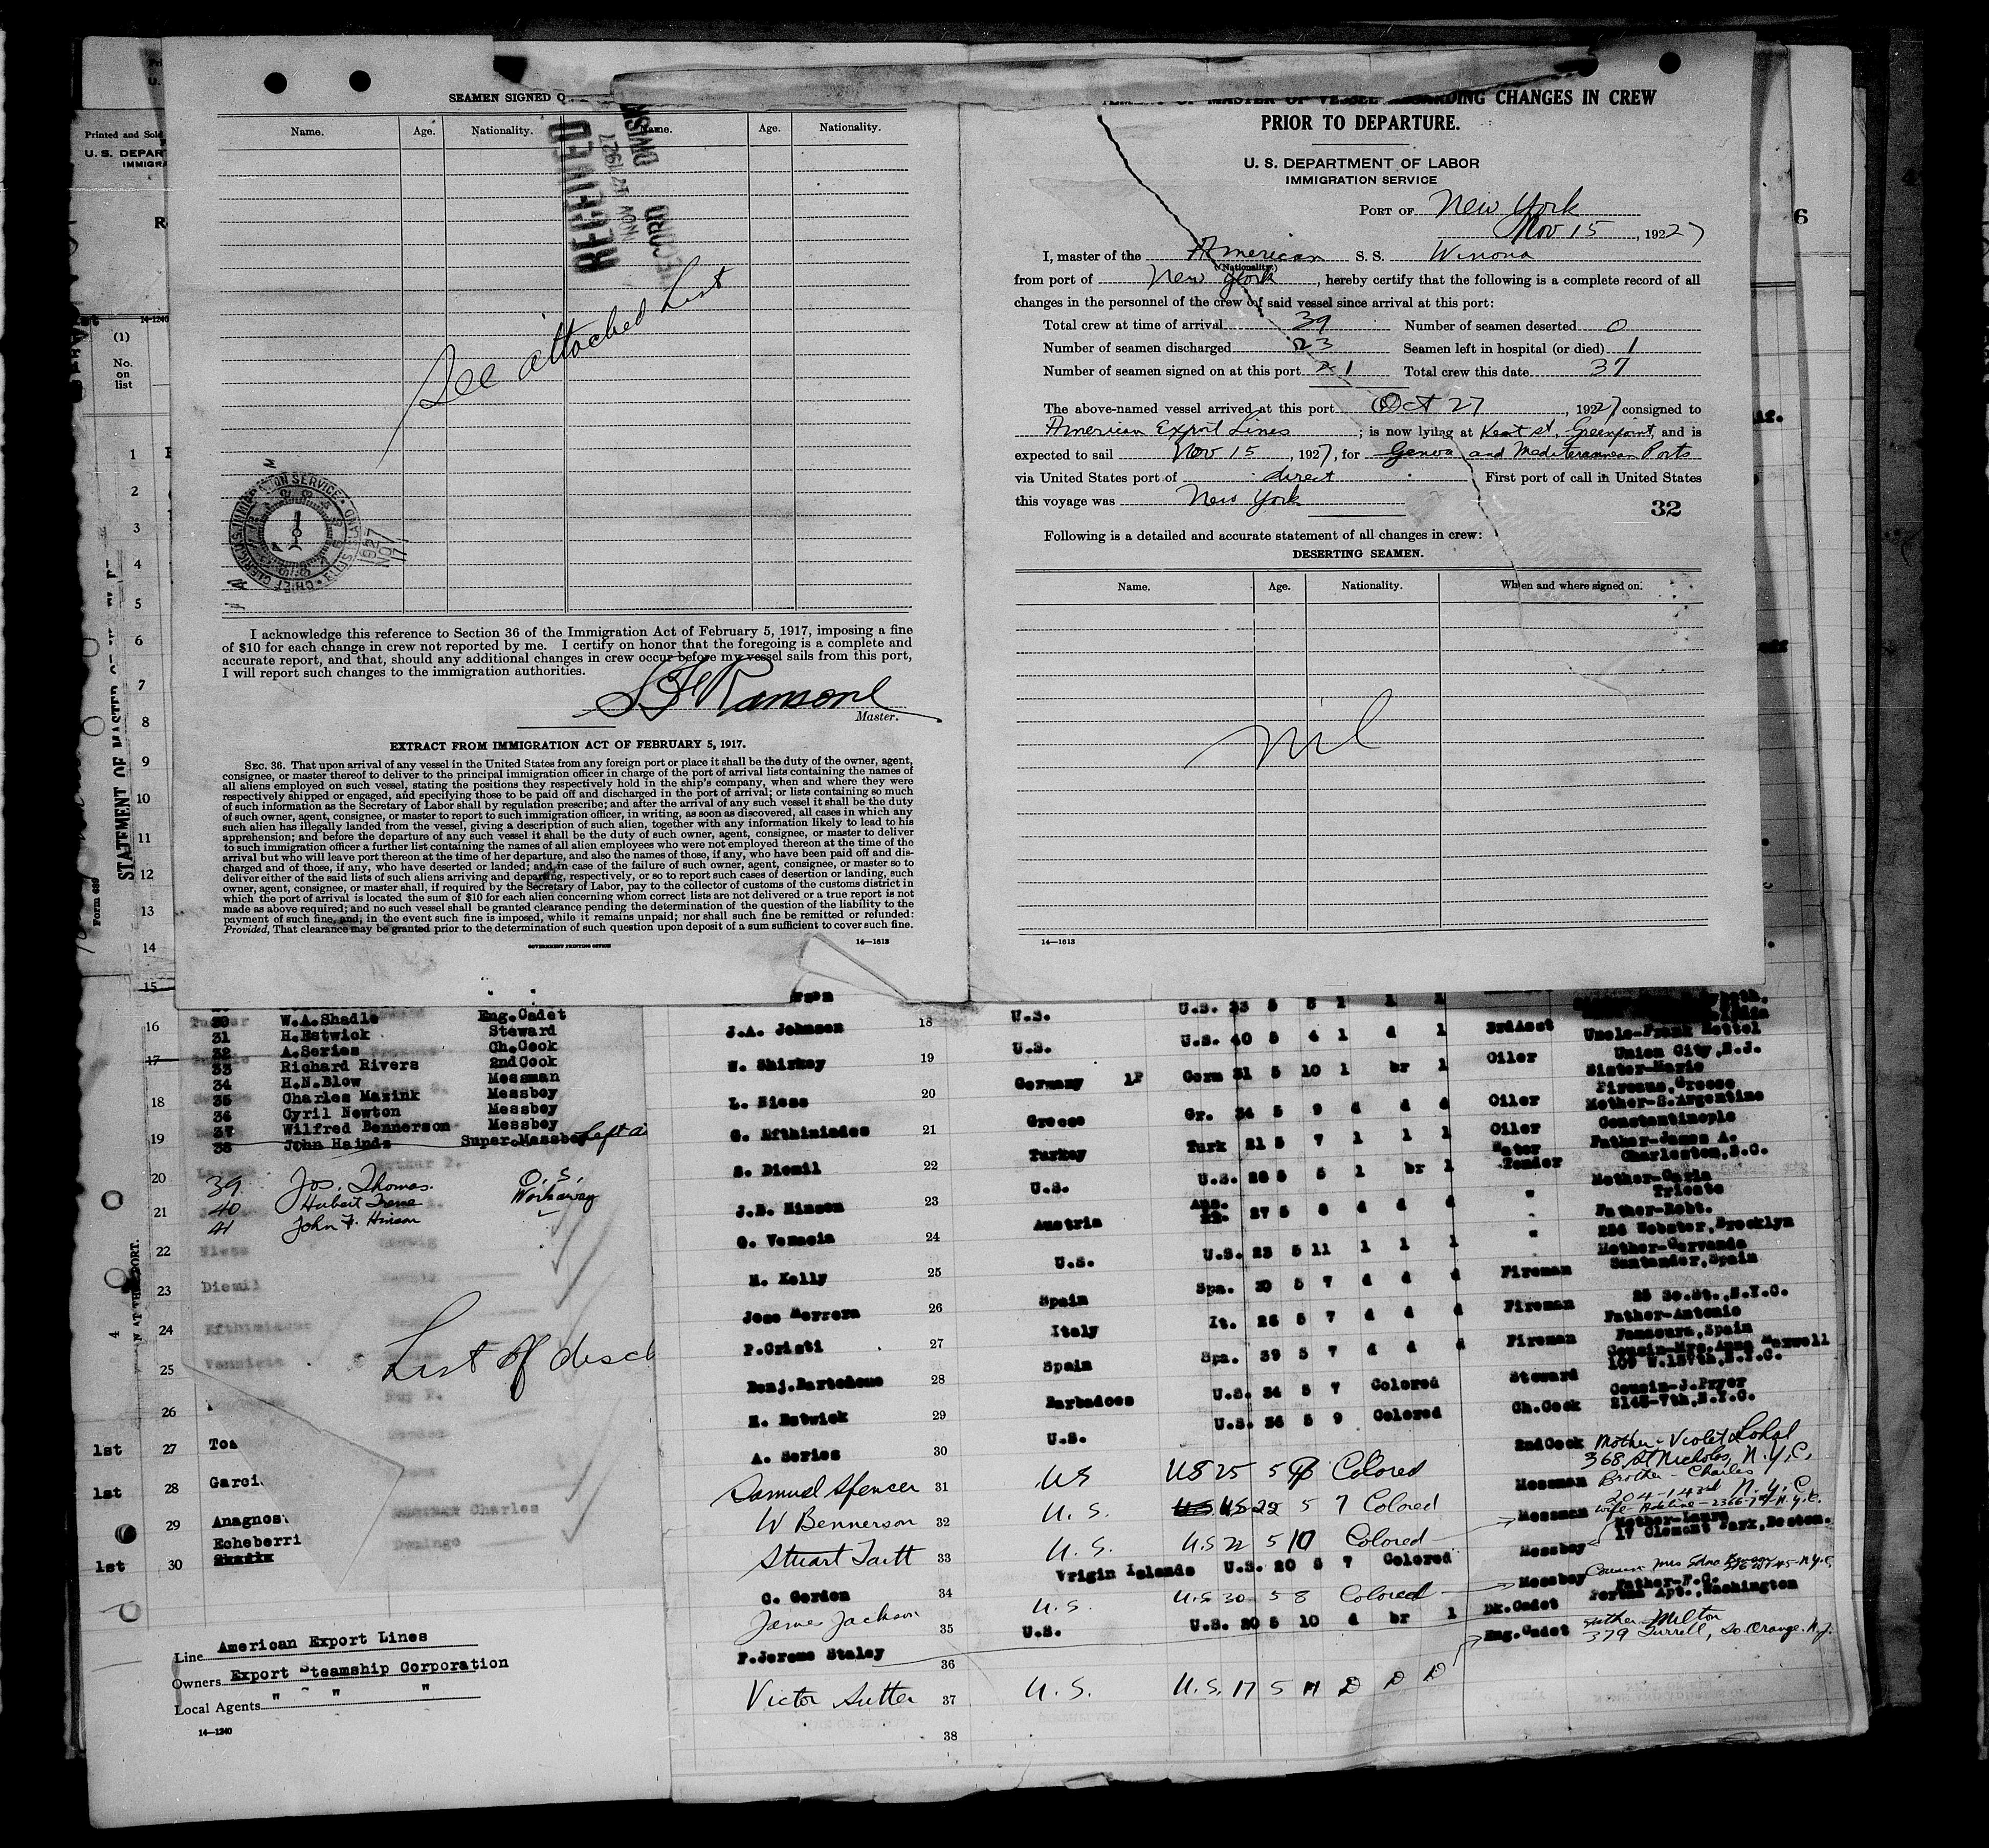 SEAMEN SIGNED
Name. Age. Nationality. Name. Age. Nationality.
RECEIVED
NOV 17 1927
RECORD
See attached List
CHIEF CLERK'S
IMMIGRATION SERVICE
1927
NOV
I acknowledge this reference to Section 36 of the Immigration Act of February 5, 1917, imposing a fine
of $10 for each change in crew not reported by me. I certify on honor that the foregoing is a complete and
accurate report, and that, should any additional changes in crew occur before my vessel sails from this port,
I will report such changes to the immigration authorities.
Master.
EXTRACT FROM IMMIGRATION ACT OF FEBRUARY 5, 1917.
SEC. 36. That upon arrival of any vessel in the United States from any foreign port or place it shall be the duty of the owner, agent,
consignee, or master thereof to deliver to the principal immigration officer in charge of the port of arrival lists containing the names of
all aliens employed on such vessel, stating the positions they respectively hold in the ship's company, when and where they were
respectively shipped or engaged, and specifying those to be paid off and discharged in the port of arrival; or lists containing so much
of such information as the Secretary of Labor shall by regulation prescribe; and after the arrival of any such vessel it shall be the duty
of such owner, agent, consignee, or master to report to such immigration officer, in writing, as soon as discovered, all cases in which any
such alien has illegally landed from the vessel, giving a description of such alien, together with any information likely to lead to his
apprehension; and before the departure of any such vessel it shall be the duty of such owner, agent, consignee, or master to deliver
to such immigration officer a further list containing the names of all alien employees who were not employed thereon at the time of the
arrival but who will leave port thereon at the time of her departure, and also the names of those, if any, who have been paid off and dis-
charged and of those, if any, who have deserted or landed; and in case of the failure of such owner, agent, consignee, or master so to
deliver either of the said lists of such aliens arriving and departing, respectively, or so to report such cases of desertion or landing, such
owner, agent, consignee, or master shall, if required by the Secretary of Labor, pay to the collector of customs of the customs district in
which the port of arrival is located the sum of $10 for each alien concerning whom correct lists are not delivered or a true report is not
made as above required; and no such vessel shall be granted clearance pending the determination of the question of the liability to the
payment of such fine, and, in the event such fine is imposed, while it remains unpaid; nor shall such fine be remitted or refunded:
Provided, That clearance may be granted prior to the determination of such question upon deposit of a sum sufficient to cover such fine.
GOVERNMENT PRINTING OFFICE
14—1613
MASTER OF VESSEL REGARDING CHANGES IN CREW
PRIOR TO DEPARTURE.
U. S. DEPARTMENT OF LABOR
IMMIGRATION SERVICE
PORT OF New York
Nov 15, 1927
I, master of the American S. S. Winona
(Nationality.)
from port of New York, hereby certify that the following is a complete record of all
changes in the personnel of the crew of said vessel since arrival at this port:
Total crew at time of arrival 39 Number of seamen deserted 0
Number of seamen discharged 23 Seamen left in hospital (or died) 1
Number of seamen signed on at this port 21 Total crew this date 37
The above-named vessel arrived at this port Oct 27, 1927, consigned to
American Export Lines; is now lying at Kent st, Greenpoint, and is
expected to sail Nov 15, 1927, for Genoa and Mediterannean Ports
via United States port of direct. First port of call in United States
this voyage was New York
32
Following is a detailed and accurate statement of all changes in crew:
DESERTING SEAMEN.
Name. Age. Nationality. When and where signed on.
nil
14—1613
Printed and Sold
U. S. DEPAR
IMMIGRA
14-1240
(1)
No.
on
list
1
2
3
4
5
6
7
8
9
10
11
12
13
14
15
16
17
18
19
20
21
22
23
24
25
26
1st 27
1st 28 Garci
29 Anagnos
Echeberri
1st 30
STATEMENT OF MASTER OF
Form 689
6
30 W.A.Shadle Eng.Cadet
31 H.Estwick Steward
32 A.Series Ch.Cook
33 Richard Rivers 2ndCook
34 H.N.Blow Messman
35 Charles Mazink Messboy
36 Cyril Newton Messboy
37 Wilfred Bennerson Messboy
38 John Hainds Super.Messboy Left
39 Jos. Thomas. O. S.
40 Hubert Irene Workaway
41 John F. Hinson
Diemil
List of disch
Line American Export Lines
Owners Export Steamship Corporation
Local Agents " " "
14—1240
J.A. Johnson 18 U.S. U.S. 33 5 8 1 1 1
W. Shirkey 19 U.S. U.S. 40 5 4 1 d 1 3rdAsst Uncle-Frank Hettel
Union City,N.J.
L. Niess 20 Germany 1P Germ 31 5 10 1 br 1 Oiler Sister-Marie
Piraeus,Greece
G. Efthimiades 21 Greece Gr. 34 5 9 d d d Oiler Mother-S.Argentine
Constantinople
S. Diemil 22 Turkey Turk 21 5 7 1 1 1 Oiler Father-James A.
Charleston,S.C.
J.B. Hinson 23 U.S. U.S. 28 5 5 1 br 1 Water Tender Mother-Maria
Trieste
G. Vemcia 24 Austria Aus. 27 5 8 d d d " Father-Robt.
256 Webster,Brooklyn
M. Kelly 25 U.S. U.S. 23 5 11 1 1 1 " Mother-Gervanda
Santander,Spain
Jose Herrera 26 Spain Spa. 20 5 7 d d d Fireman
25 So.St.,N.Y.C.
P.Cristi 27 Italy It. 26 5 7 d d d Fireman Father-Antonio
Pamoura,Spain
Benj.Bartedoue 28 Spain Spa. 39 5 7 d d d Fireman Cousin-Mrs.Anna Maxwell
109 W.137th,N.Y.C.
H. Estwick 29 Barbadoes U.S. 34 5 7 Colored Steward Cousin-J.Pryer
2145-7th,N.Y.C.
A. Series 30 U.S. U.S. 36 5 9 Colored Ch.Cook
Samuel Spencer 31 US US 25 5 8 Colored 2ndCook Mother-Violet
368 St Nicholas, N.Y.C.
W Bennerson 32 U.S. US 22 5 7 Colored Messman Brother-Charles
204-143rd N.Y.C.
Stuart Taitt 33 U.S. U.S 22 5 10 Colored Messman Wife-Adeline-2366-7th-N.Y.C.
C. Gordon 34 Vrigin Islands U.S. 20 5 7 Colored Messboy Mother-Laura
17 Clement Park,Boston.
James Jackson 35 U.S. U.S 30 5 8 Colored Messboy Cousin Mrs Edna
F.Jerome Staley 36 U.S. U.S. 20 5 10 d br 1 Dk.Cadet Father-F.C.
Apt.,Washington
Victor Sutter 37 U.S. U.S. 17 5 11 D D D Eng.Cadet Father-Milton
379 Turrell, So Orange. N.J.
38